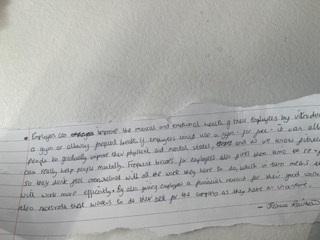 • Employers can improve the mental and emotional health of their employees by introducing
a gym or allowing frequent breaks if employees could use a gym for free it can allow
people to gradually improve their physical and mental state, and as we know physical
can really help people mentally. Frequent breaks for employees also gives them time to
so they dont feel overwhelmed with all the work they have to do, which in turn means
will work more efficiently. By also giving employees a financial reward for their good work
also motivate their workers so do their best for the company as they have an incentive.
-